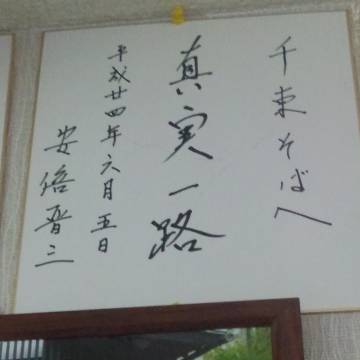 千束そばへ
真実一路
平成廿四年六月五日
安倍晋三